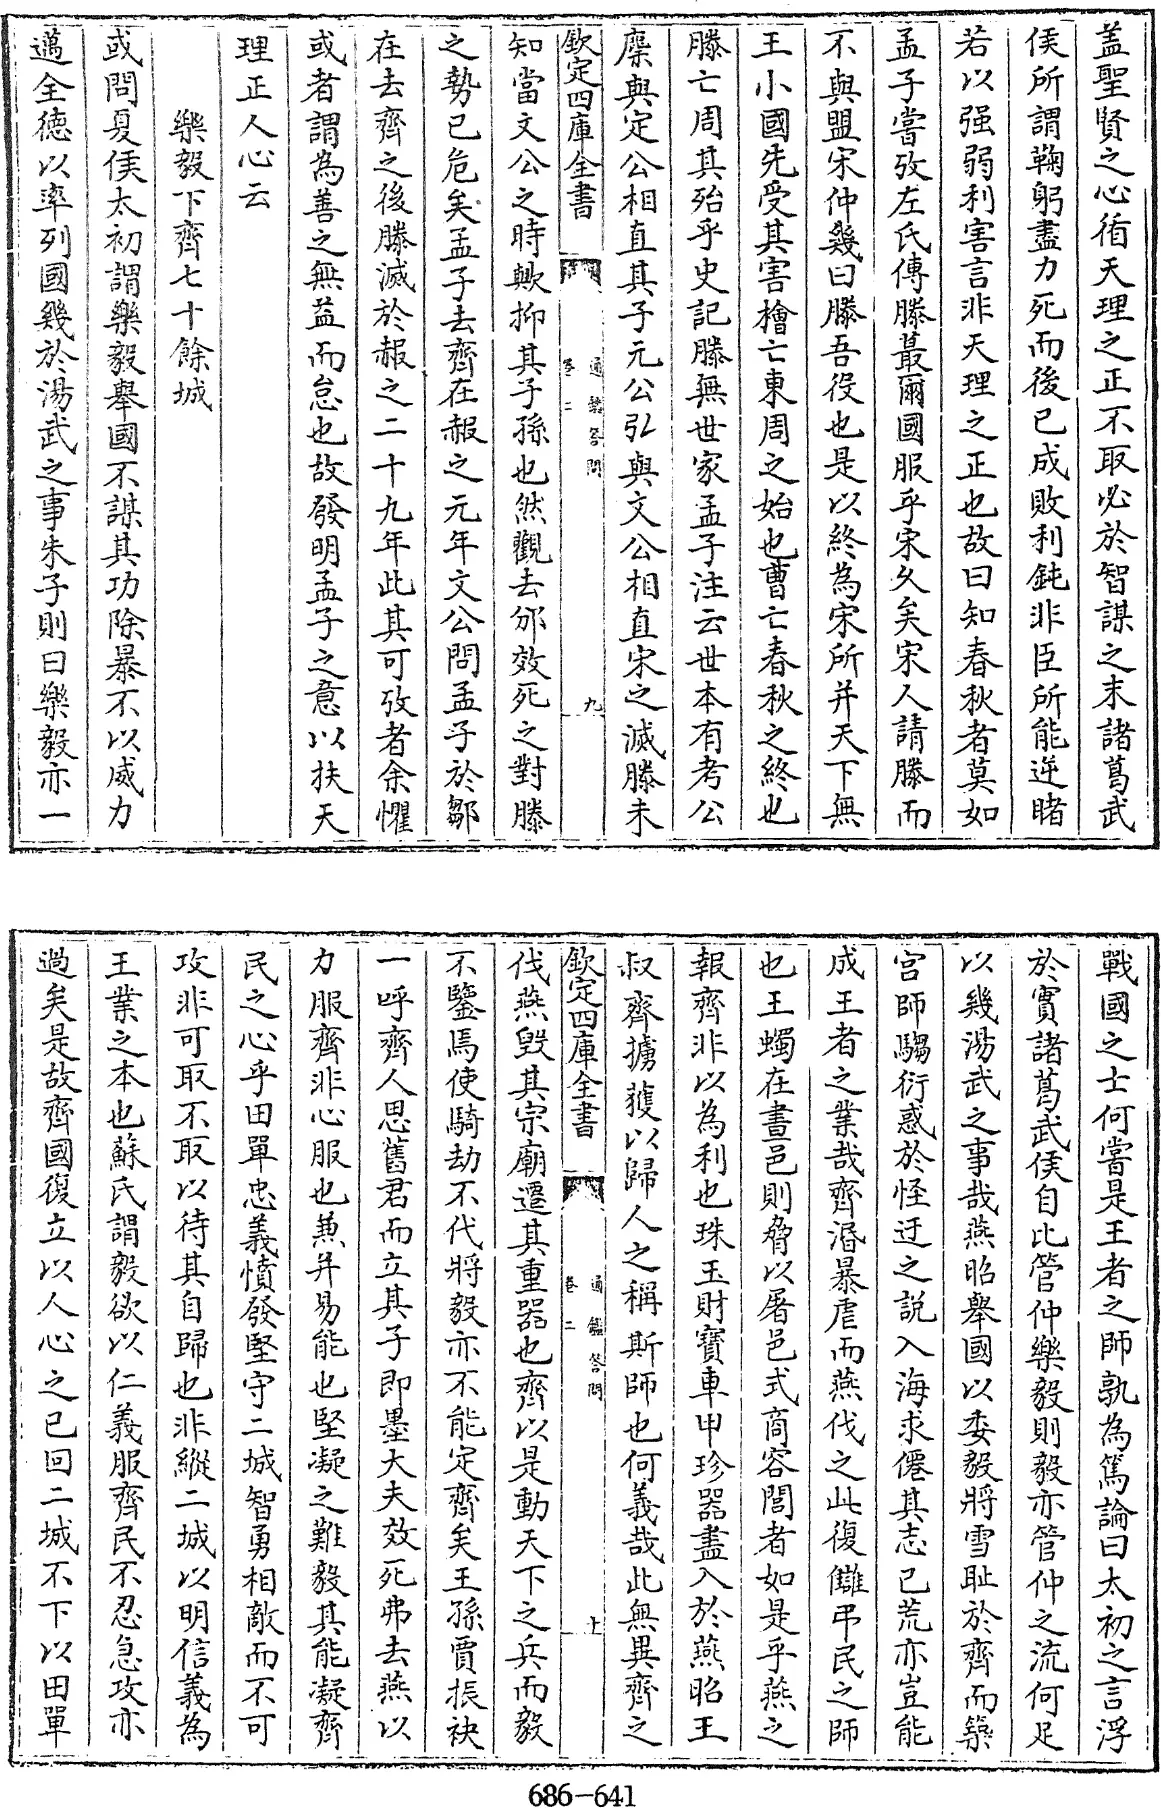 蓋聖賢之心循天理之正不取必於智謀之末諸葛武
侯所謂鞠躬盡力死而後已成敗利鈍非臣所能逆睹
若以强弱利害言非天理之正也故曰知春秋者莫如
孟子嘗攷左氏傳滕蕞爾國服乎宋久矣宋人請滕而
不與盟宋仲幾曰滕吾役也是以終為宋所并天下無
王小國先受其害檜亡東周之始也曹亡春秋之終也
滕亡周其殆乎史記滕無世家孟子注云世本有考公
麇與定公相直其子元公弘與文公相直宋之滅滕未
欽定四庫全書 通鑑答問 卷二 九
知當文公之時歟抑其子孫也然觀去邠效死之對滕
之勢已危矣孟子去齊在赧之元年文公問孟子於鄒
在去齊之後滕滅於赧之二十九年此其可攷者余懼
或者謂為善之無益而怠也故發明孟子之意以扶天
理正人心云
樂毅下齊七十餘城
或問夏侯太初謂樂毅舉國不謀其功除暴不以威力
邁全德以率列國幾於湯武之事朱子則曰樂毅亦一
戰國之士何嘗是王者之師孰為篤論曰太初之言浮
於實諸葛武侯自比管仲樂毅則毅亦管仲之流何足
以幾湯武之事哉燕昭舉國以委毅將雪耻於齊而築
宫師騶衍惑於怪迂之説入海求僊其志已荒亦豈能
成王者之業哉齊湣暴虐而燕伐之此復讎弔民之師
也王蠋在晝邑則脅以屠邑式商容閭者如是乎燕之
報齊非以為利也珠玉財寶車甲珍器盡入於燕昭王
叔齊擄獲以歸人之稱斯師也何義哉此無異齊之
欽定四庫全書 通鑑答問 卷二 十
伐燕毁其宗廟遷其重器也齊以是動天下之兵而毅
不鑒焉使騎劫不代將毅亦不能定齊矣王孫賈振袂
一呼齊人思舊君而立其子即墨大夫效死弗去燕以
力服齊非心服也兼并易能也堅凝之難毅其能凝齊
民之心乎田單忠義憤發堅守二城智勇相敵而不可
攻非可取不取以待其自歸也非縱二城以明信義為
王業之本也蘇氏謂毅欲以仁義服齊民不忍急攻亦
過矣是故齊國復立以人心之已回二城不下以田單
686-641